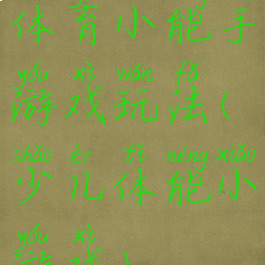 体育小能手
yóu xì wán fǎ
游戏玩法(
shǎo ér tǐ néng xiǎo
少儿体能小
yóu xì
游戏)